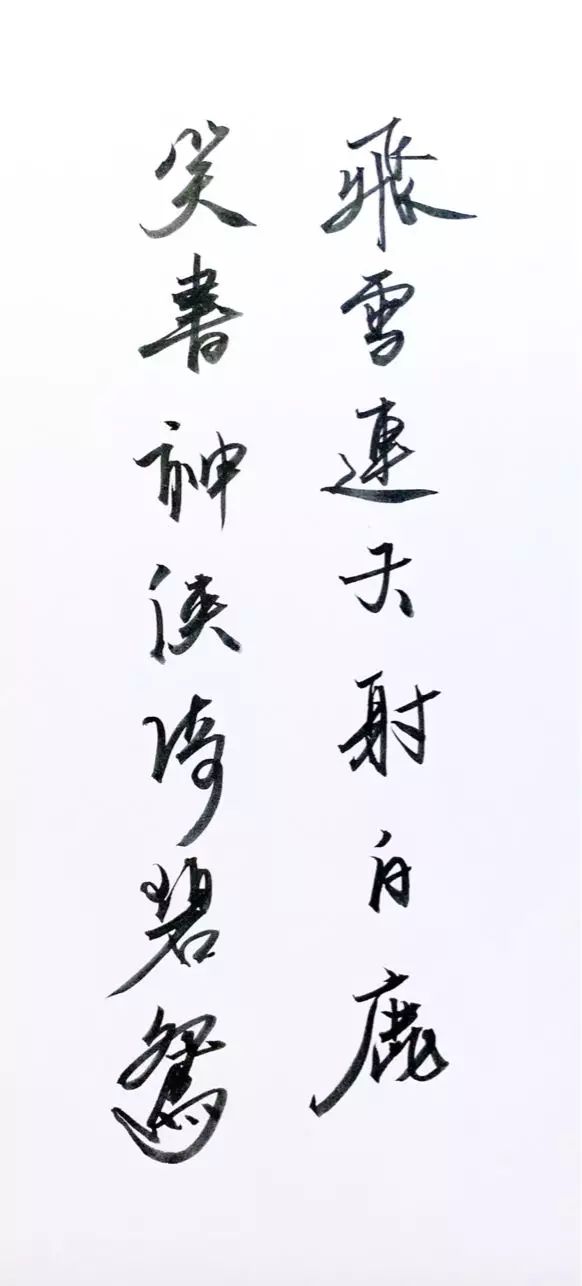 飛雪連天射白鹿
笑書神俠倚碧鴛